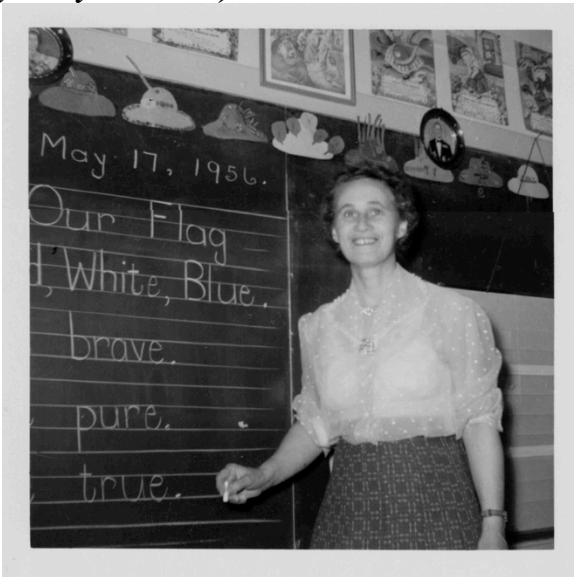 May 17, 1956.
Our Flag
d, White, Blue.
brave.
pure.
true.